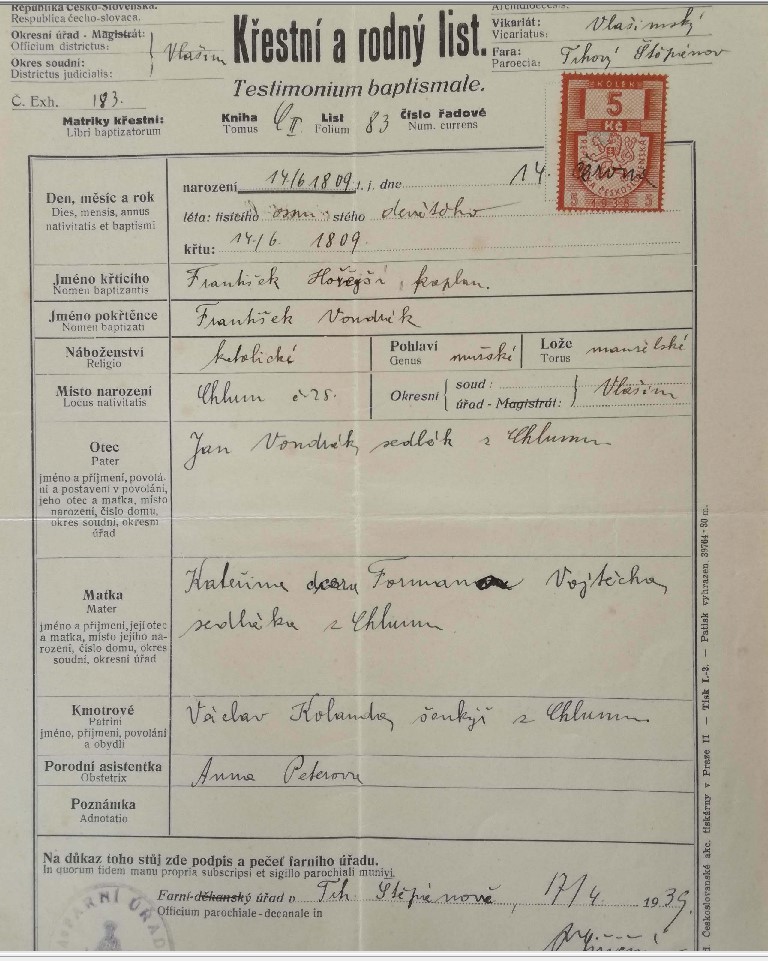 Republika Česko-Slovenská.
Respublica čecho-slovaca.
Okresní úřad - Magistrát:
Officium districtus:
Okres soudní:
Districtus judicialis:
Vlašim
Č. Exh. 183.
Křestní a rodný list.
Testimonium baptismale.
Archidioecesis:
Vikariát: Vlašimský
Vicariatus:
Fara: Trhový Štěpánov
Paroecia:
Matriky křestní:
Libri baptizatorum
Kniha II List 83 číslo řadové
Tomus Folium Num. currens
ŠKOLSKÉ
5
Kč
5 1938 5
Den, měsíc a rok
Dies, mensis, annus
nativitatis et baptismi
narození 14/6 1809 t. j. dne 14. června
léta: tisícího osmi stého devátého
křtu: 14/6. 1809.
Jméno křtícího
Nomen baptizantis
František Hořejší, kaplan.
Jméno pokřtěnce
Nomen baptizati
František Vondrák
Náboženství
Religio
katolické
Pohlaví
Genus
mužské
Lože
Torus
manželské
Místo narození
Locus nativitatis
Chlum č. 28.
Okresní
soud:
úřad - Magistrát:
Vlašim
Otec
Pater
jméno a příjmení, povolá-
ní a postavení v povolání,
jeho otec a matka, místo
narození, číslo domu,
okres soudní, okresní
úřad
Jan Vondrák, sedlák z Chlumu
Matka
Mater
jméno a příjmení, její otec
a matka, místo jejího na-
rození, číslo domu, okres
soudní, okresní úřad
Kateřina dcera Formana Vojtěcha,
sedláka z Chlumu
Kmotrové
Patrini
jméno, příjmení, povolání
a obydlí
Václav Kolanda, šenkýř z Chlumu
Porodní asistentka
Obstetrix
Anna Peterova
Poznámka
Adnotatio
Na důkaz toho stůj zde podpis a pečeť farního úřadu.
In quorum fidem manu propria subscripsi et sigillo parochiali munivi.
Farní-děkanský úřad v Trh. Štěpánově, 17/4. 1939.
Officium parochiale - decanale in
FARNÍ ÚŘAD
d. Československé akc. tiskárny v Praze II — Tisk L-2. — Patisk vyhrazen. 39764-30 m.